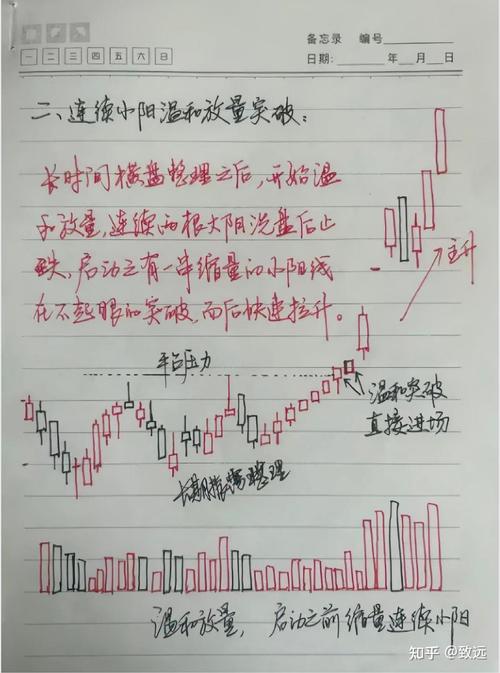 备忘录 编号
一 二 三 四 五 六 日
日期: 年 月 日
二、连续小阳温和放量突破:
长时间横盘整理之后,开始温
和放量,连续两根大阴洗盘后止
跌,启动之有一串缩量的小阳线
在不起眼的突破,而后快速拉升。
主升
平台压力
温和突破
直接进场
长期横盘整理
温和放量, 启动之前缩量连续小阳
知乎 @致远